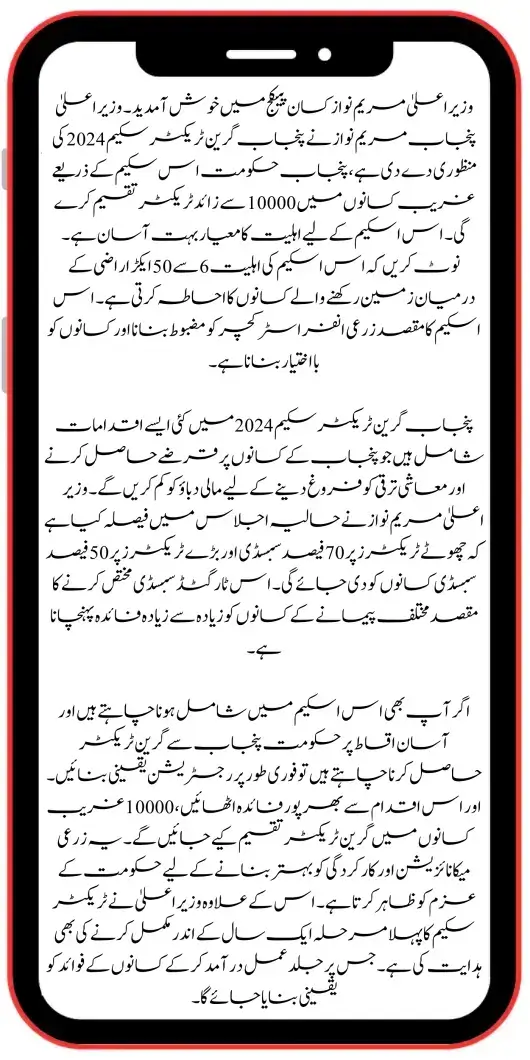 وزیر اعلیٰ مریم نواز کسان پیکج میں خوش آمدید۔ وزیر اعلیٰ
پنجاب مریم نواز نے پنجاب گرین ٹریکٹر سکیم 2024 کی
منظوری دے دی ہے، پنجاب حکومت اس سکیم کے ذریعے
غریب کسانوں میں 10000 سے زائد ٹریکٹر تقسیم کرے
گی۔ اس اسکیم کے لیے اہلیت کا معیار بہت آسان ہے۔
نوٹ کریں کہ اس اسکیم کی اہلیت 6 سے 50 ایکڑ اراضی کے
درمیان زمین رکھنے والے کسانوں کا احاطہ کرتی ہے۔ اس
اسکیم کا مقصد زرعی انفراسٹرکچر کو مضبوط بنانا اور کسانوں کو
بااختیار بنانا ہے۔
پنجاب گرین ٹریکٹر سکیم 2024 میں کئی ایسے اقدامات
شامل ہیں جو پنجاب کے کسانوں پر قرضے حاصل کرنے
اور معاشی ترقی کو فروغ دینے کے لیے مالی دباؤ کو کم کریں گے۔ وزیر
اعلیٰ مریم نواز نے حالیہ اجلاس میں فیصلہ کیا ہے
کہ چھوٹے ٹریکٹرز پر 70 فیصد سبسڈی اور بڑے ٹریکٹرز پر 50 فیصد
سبسڈی کسانوں کو دی جائے گی۔ اس ٹارگٹڈ سبسڈی مختص کرنے کا
مقصد مختلف پیمانے کے کسانوں کو زیادہ سے زیادہ فائدہ پہنچانا
ہے۔
اگر آپ بھی اس اسکیم میں شامل ہونا چاہتے ہیں اور
آسان اقساط پر حکومت پنجاب سے گرین ٹریکٹر
حاصل کرنا چاہتے ہیں تو فوری طور پر رجسٹریشن یقینی بنائیں۔
اور اس اقدام سے بھرپور فائدہ اٹھائیں، 10000 غریب
کسانوں میں گرین ٹریکٹر تقسیم کیے جائیں گے۔ یہ زرعی
میکانائزیشن اور کارکردگی کو بہتر بنانے کے لیے حکومت کے
عزم کو ظاہر کرتا ہے۔ اس کے علاوہ وزیر اعلیٰ نے ٹریکٹر
سکیم کا پہلا مرحلہ ایک سال کے اندر مکمل کرنے کی بھی
ہدایت کی ہے۔ جس پر جلد عمل درآمد کر کے کسانوں کے فوائد کو
یقینی بنایا جائے گا۔